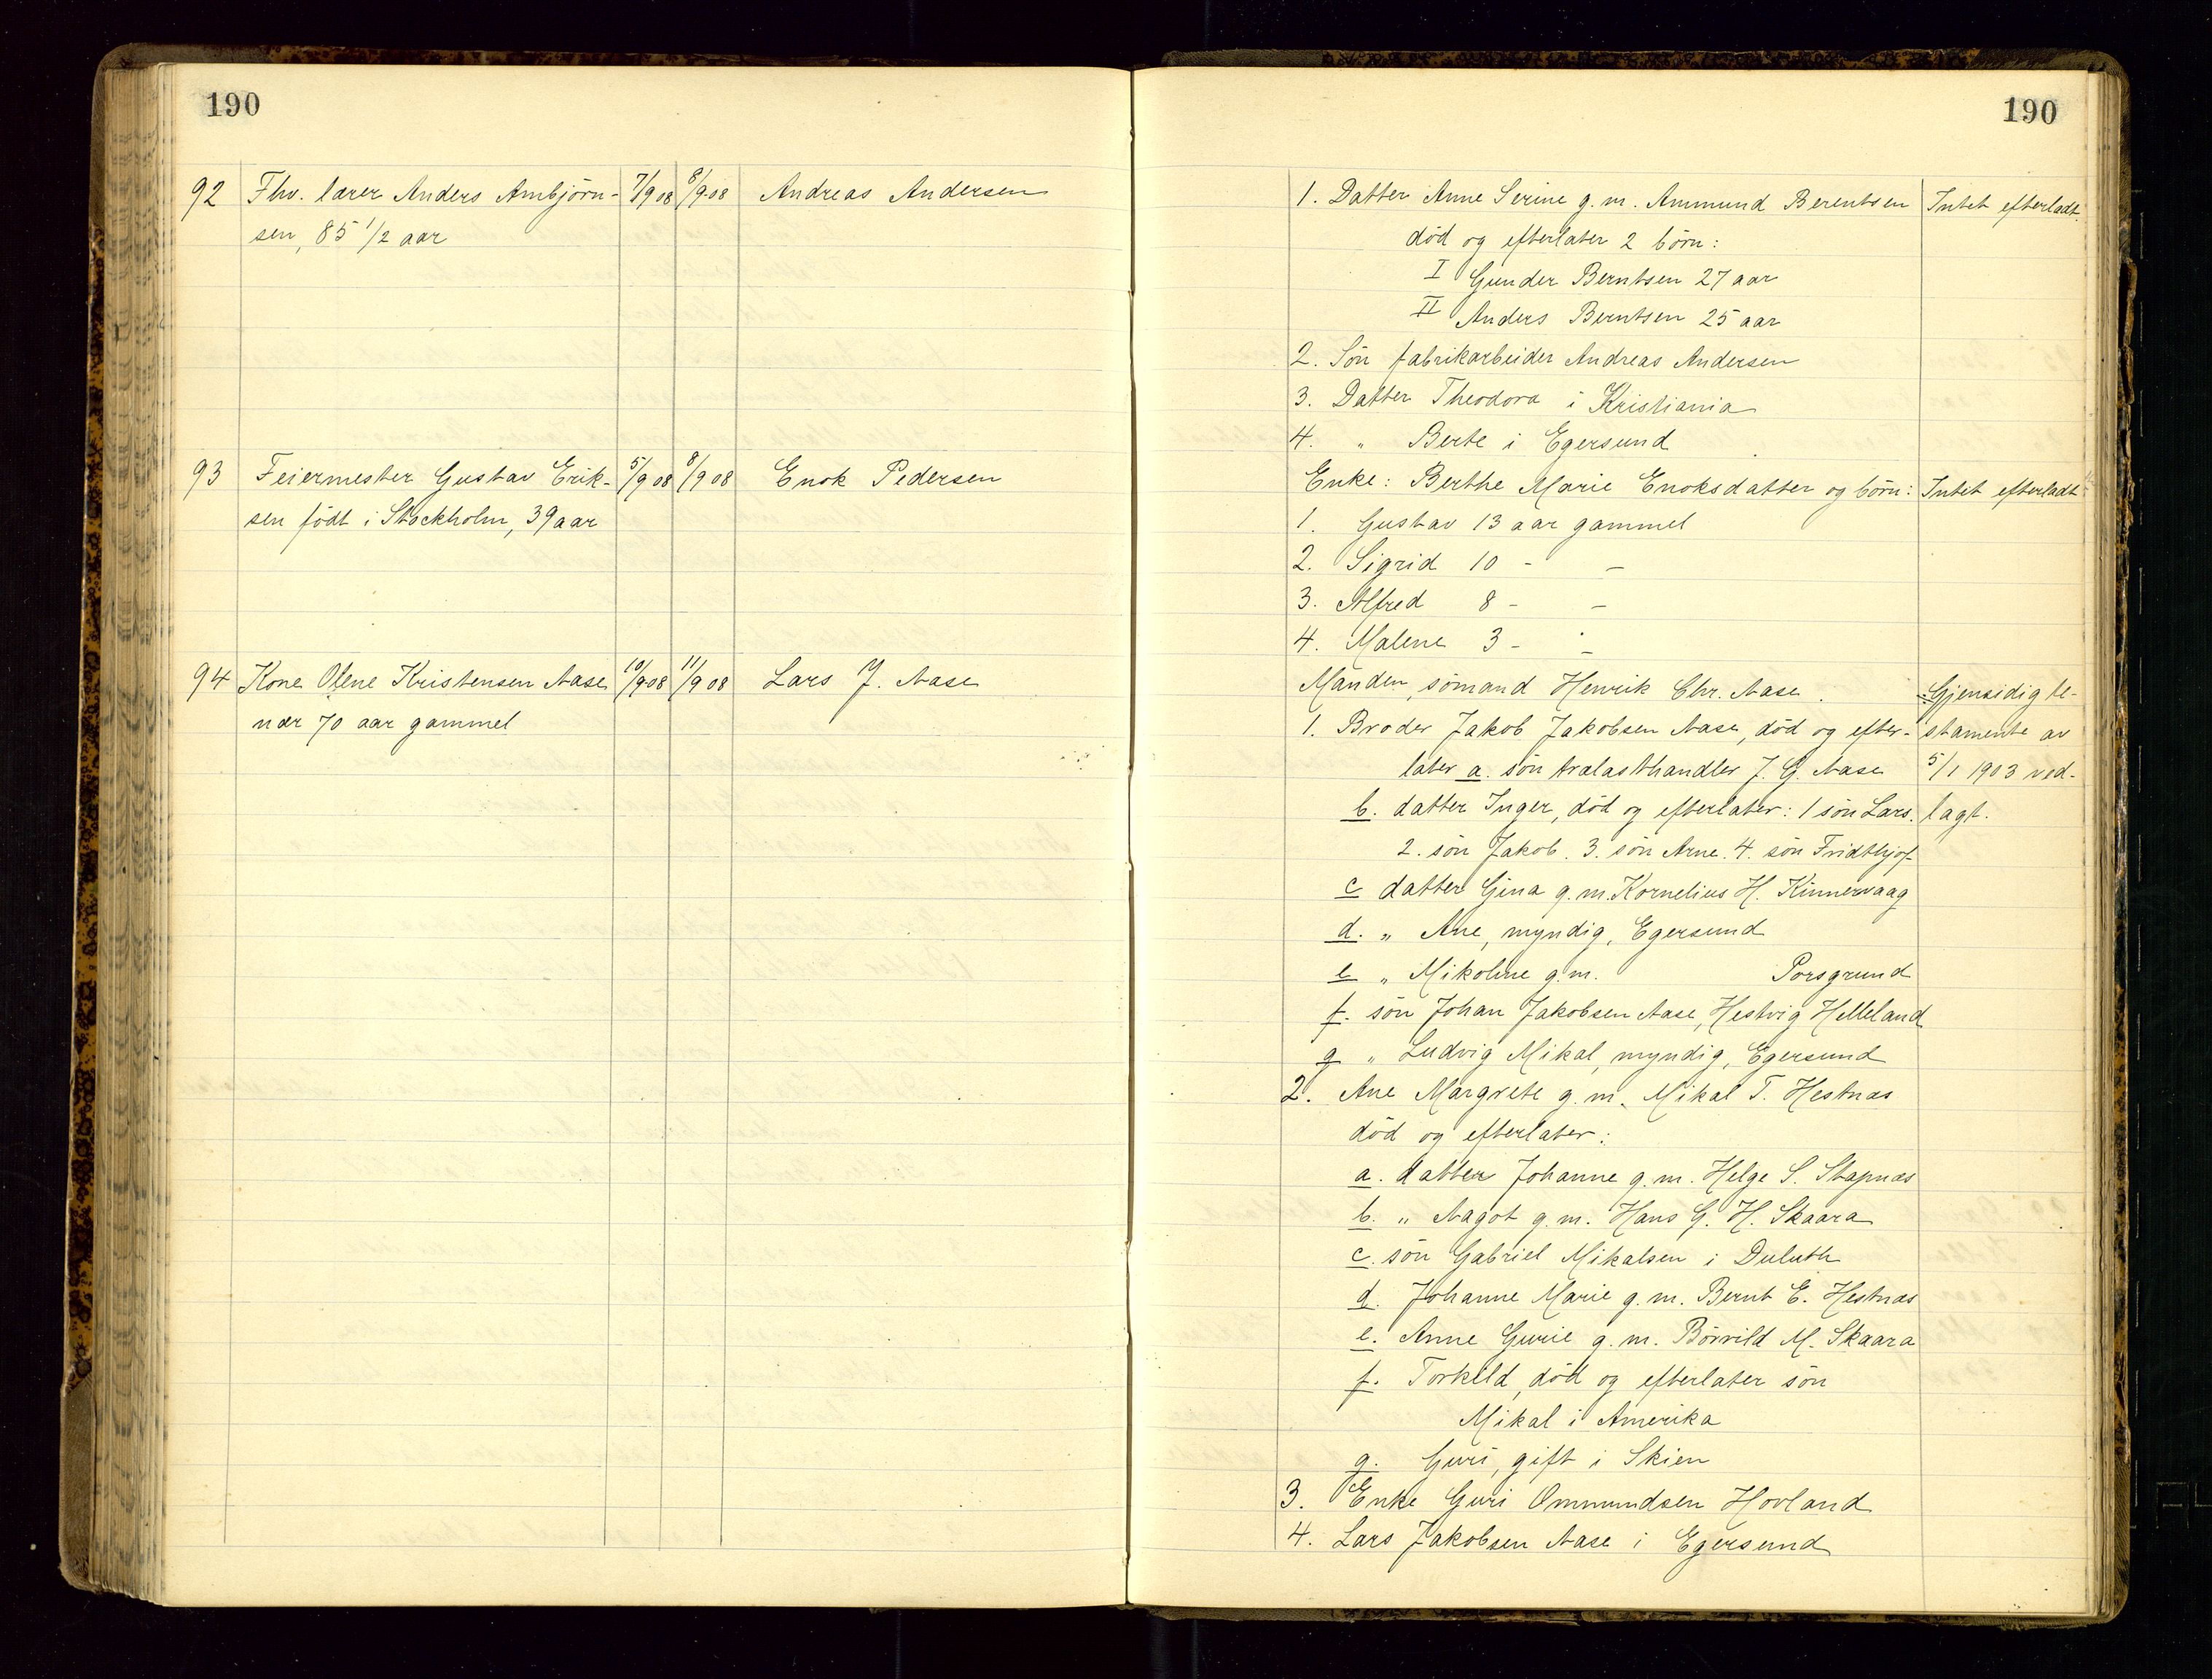 190
92 Fhv. lærer Anders Ambjörn- 7/9 08 8/9 08 Andreas Andersen
sen, 85 1/2 aar
93 Feiermester Gustav Erik- 5/9 08 8/9 08 Enok Pedersen
sen født i Stockholm, 39 aar
94 Kone Olene Kristensen Aase 10/9 08 11/9 08 Lars J. Aase
nær 70 aar gammel
190
1. Datter Anne Serine g. m. Ammund Berentsen Intet efterladt.
död og efterlater 2 börn:
I Gunder Berntsen 27 aar
II Anders Berntsen 25 aar
2. Sön fabrikarbeider Andreas Andersen
3. Datter Theodora i Kristiania
4. " Berte i Egersund
Enke: Berthe Marie Enoksdatter og börn: Intet efterladt
1. Gustav 13 aar gammel
2. Sigrid 10 - -
3. Alfred 8 - -
4. Malene 3 - -
Manden, sömand Henrik Chr. Aase. Gjensidig te-
1. Broder Jakob Jakobsen Aase, död og efter- stamente av
later a. sön trælasthandler J. G. Aase 5/1 1903 ved-
b. datter Inger, död og efterlater: 1 sön Lars. lagt.
2. sön Jakob. 3. sön Arne. 4. sön Fridthjof
c datter Gina g. m. Kornelius H. Kinnervaag
d. " Ane, myndig, Egersund
e " Mikoline g. m. Porsgrund
f. sön Johan Jakobsen Aase, Hestvig Helleland
g " Ludvig Mikal, myndig, Egersund
2. Ane Margrete g. m. Mikal T. Hestnæs
död og efterlater:
a. datter Johanne g. m. Helge S. Stapnæs
b. " Aagot g. m. Hans G. H. Skaara
c. sön Gabriel Mikalsen i Duluth
d. Johanne Marie g. m. Bernt E. Hestnæs
e. Anne Gurie g. m. Börrild M. Skaara
f. Torkild, död og efterlater sön
Mikal i Amerika
g. Guri, gift i Skien
3. Enke Guri Ommundsen Hovland
4. Lars Jakobsen Aase i Egersund